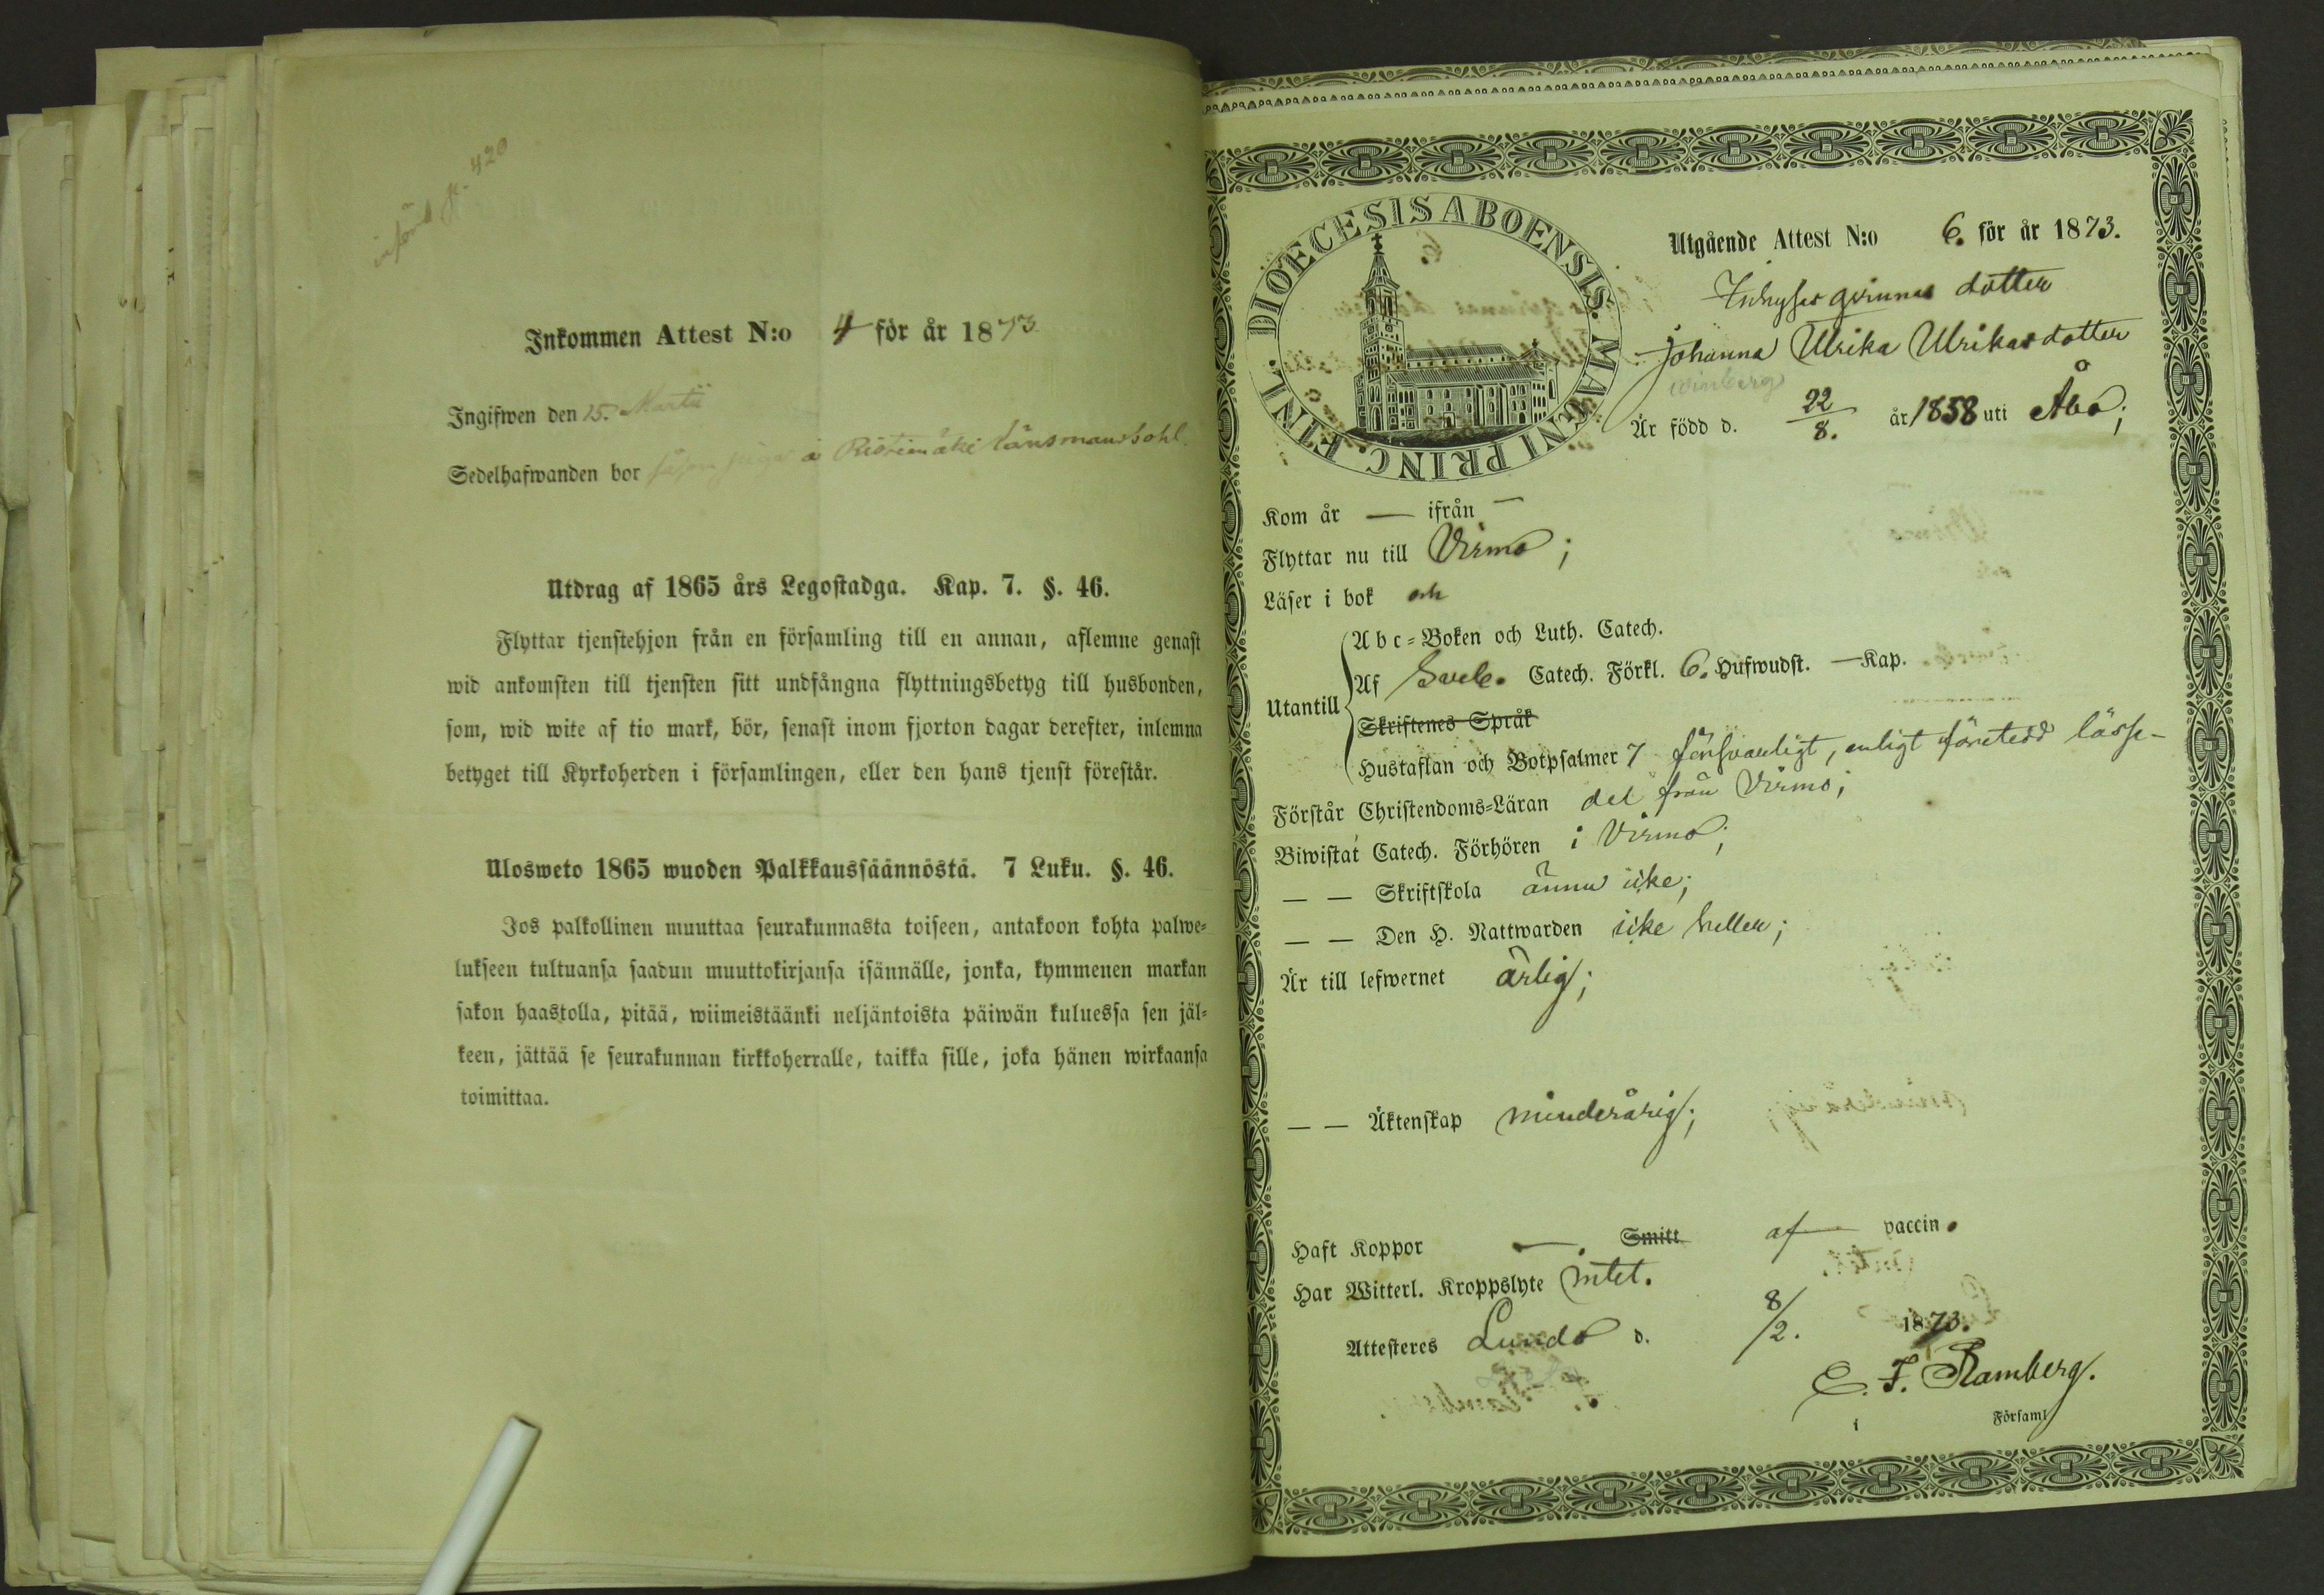 införd p. 420
Inkommen Attest N:o 4 för år 1873
Ingifwen den 15. Martii
Sedelhafwanden bor å Ristimäki länsmansbohl.
Utdrag af 1865 års Legostadga. Kap. 7. §. 46.
Flyttar tjenstehjon från en församling till en annan, aflemne genast
wid ankomsten till tjensten sitt undfångna flyttningsbetyg till husbonden,
som, wid wite af tio mark, bör, senast inom fjorton dagar derefter, inlemna
betyget till Kyrkoherden i församlingen, eller den hans tjenst förestår.
Ulosweto 1865 wuoden Palkkaussäännöstä. 7 Luku. §. 46.
Jos palkollinen muuttaa seurakunnasta toiseen, antakoon kohta palwe-
lukseen tultuansa saadun muuttokirjansa isännälle, jonka, kymmenen markan
sakon haastolla, pitää, wiimeistäänki neljäntoista päiwän kuluessa sen jäl-
keen, jättää se seurakunnan kirkkoherralle, taikka sille, joka hänen wirkaansa
toimittaa.
DIOECESIS ABOENSIS. MAGNI PRINC. FINL.
Utgående Attest N:o 6. för år 1873.
Inhyses qvinnas dotter
Johanna Ulrika Ulrikasdotter
Winberg
Är född d. 22/8. år 1858 uti Åbo;
Kom år — ifrån —
Flyttar nu till Virmo;
Läser i bok och
Utantill
Abc-Boken och Luth. Catech.
Af Sveb. Catech. Förkl. 6. Hufwudst. — Kap.
Skriftenes Språk
Hustaflan och Botpsalmer 7 försvarligt, enligt företedd lässe-
Förstår Christendoms-Läran del från Virmo;
Biwistat Catech. Förhören i Virmo;
— — Skriftskola ännu icke;
— — Den H. Nattwarden icke heller;
Är till lefwernet ärlig;
— — Äktenskap minderårig;
Haft Koppor — Smitt af vaccin.
Har Witterl. Kroppslyte intet.
Attesteres Lundo d. 8/2. 1873.
C. F. Ramberg.
i Församl